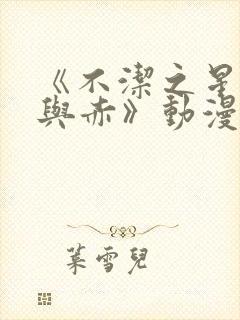 《不潔之星
與赤》動漫
葉雪兒